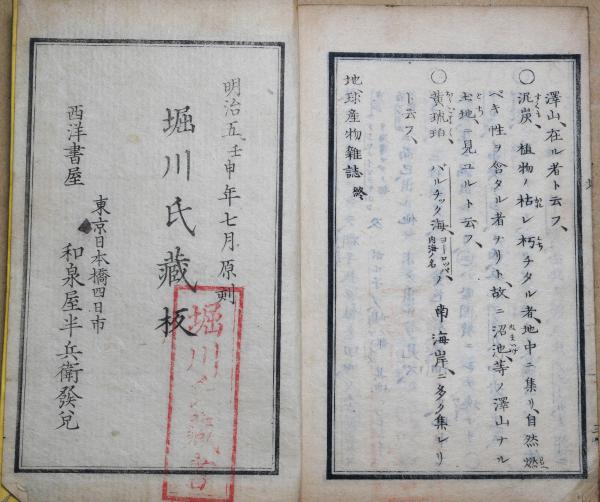 澤山、在ル者ト云フ、
○泥炭、植物ノ枯レ朽チタル者、地中ニ集リ、自然燃
ベキ性ヲ含タル者ナリト、故ニ沼池等ノ澤山ナル
土地ニ見ユルト云フ、
○黄琥珀、バルチック海、ヨーロッパ内海ノ名ノ南海岸ニ多ク集レリ
ト云フ、
地球産物雜誌 終
明治五壬申年七月原刻
堀川氏藏板
東京日本橋四日市
西洋書屋 和泉屋半兵衛發兌
堀川